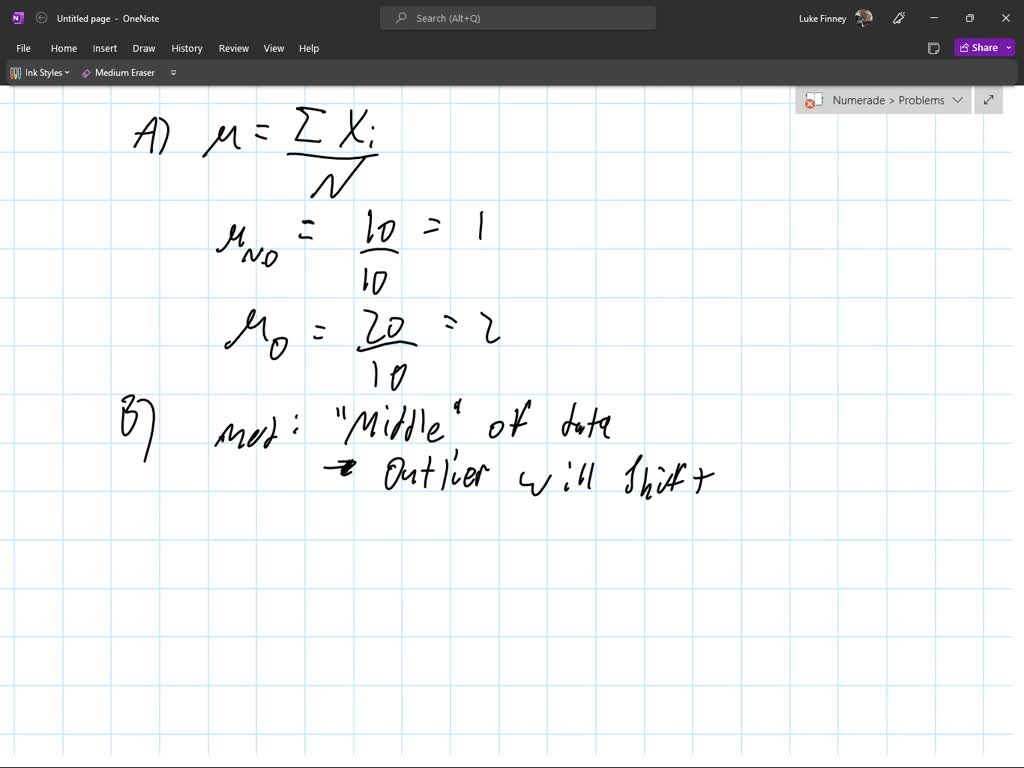 Untitled page - OneNote
Search (Alt+Q)
Luke Finney
File Home Insert Draw History Review View Help
Share
Ink Styles Medium Eraser
Numerade > Problems
A) μ = Σ Xi
N
μNO = 10 = 1
10
μO = 20 = 2
10
B) med: "Middle" of data
→ Outlier will shift